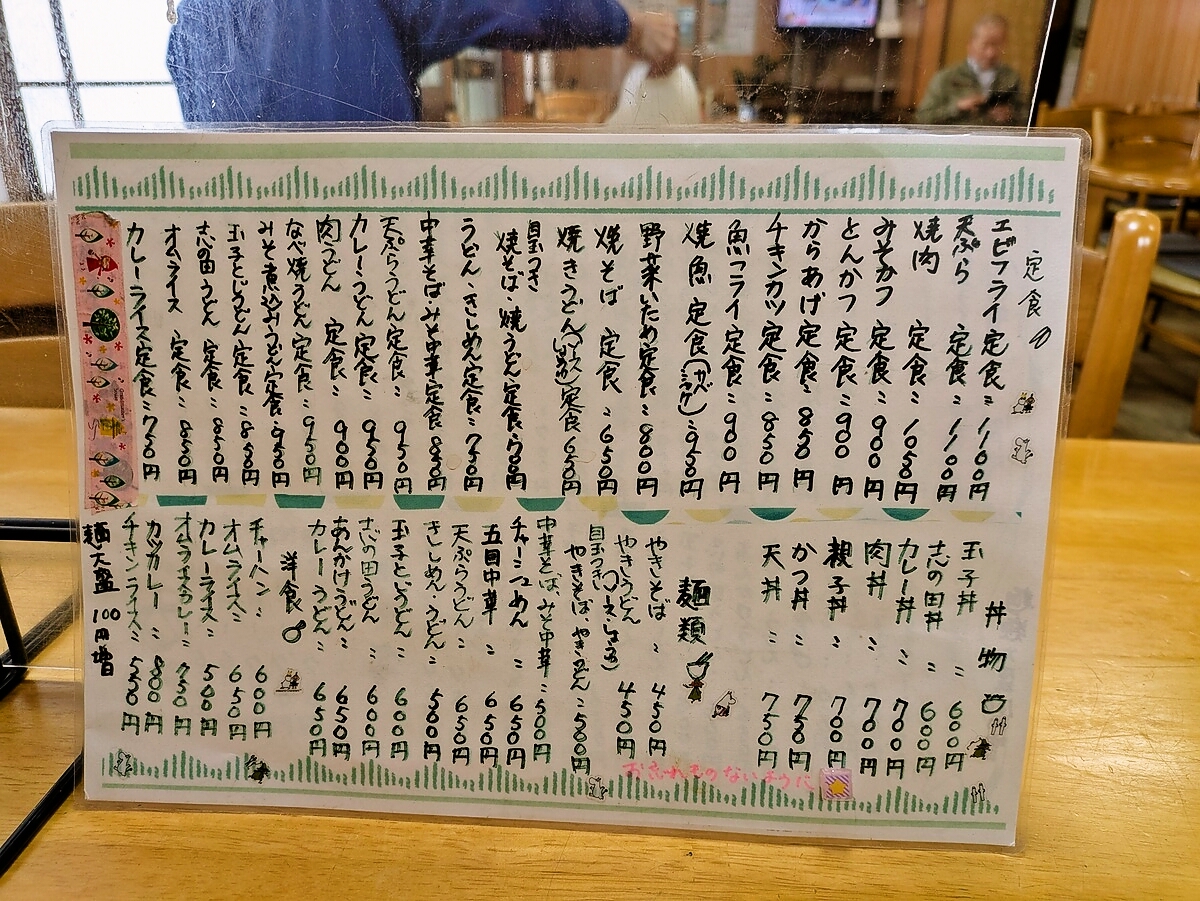 定食
エビフライ 定食 〃 1100円
天ぷら 定食 〃 1100円
焼肉 定食 〃 1050円
みそかつ 定食 〃 900円
とんかつ 定食 〃 900円
からあげ 定食 〃 850円
チキンカツ 定食 〃 850円
魚フライ 定食 〃 900円
焼魚 定食 〃 950円
野菜いため定食 〃 800円
焼そば 定食 〃 650円
焼きうどん 定食 650円
目玉つき
焼そば・焼うどん定食 〃 700円
うどん・きしめん定食 〃 750円
中華そば・みそ中華定食 850円
天ぷらうどん定食 〃 950円
カレーうどん 定食 〃 950円
肉うどん 定食 〃 900円
なべ焼うどん定食 〃 950円
みそ煮込みうどん定食 950円
玉子とじうどん定食 〃 850円
志の田うどん 定食 〃 850円
オムライス 定食 〃 850円
カレーライス定食 〃 750円
丼物
玉子丼 〃 600円
志の田丼 〃 600円
カレー丼 〃 700円
肉丼 〃 700円
親子丼 700円
かつ丼 〃 750円
天丼 〃 750円
麺類
やきそば 〃 450円
やきうどん 450円
目玉つき
やきそば、やきうどん 〃 500円
中華そば、みそ中華 〃 500円
チャーシューめん 〃 650円
五目中華 〃 650円
天ぷらうどん 〃 650円
きしめん、うどん 〃 500円
玉子とじうどん 〃 600円
志の田うどん 〃 600円
あんかけうどん 〃 650円
カレーうどん 〃 650円
洋食
チャーハン 〃 600円
オムライス 〃 650円
カレーライス 〃 500円
オムライスカレー 〃 750円
カツカレー 〃 800円
チキンライス 〃 550円
麺大盛 100円増
お忘れものないように